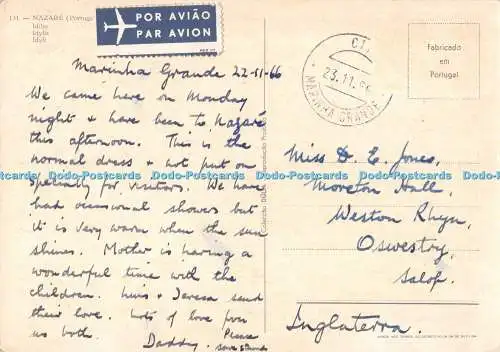 131 — NAZARÉ (Portugal)
Idílio
Idylle
Idyll
POR AVIÃO
PAR AVION
Fabricado
em
Portugal
23.11.66
MARINHA GRANDE
Marinha Grande 22-11-66
We came here on Monday
night & have been to Nazaré
this afternoon. This is the
normal dress & not put on
specially for visitors. We have
had occasional showers but
it is very warm when the sun
shines. Mother is having a
wonderful time with the
children. Luis & Teresa send
their love. Lots of love from
us both.
Daddy.
Please
save stamps
Miss D. E. Jones,
Moreton Hall,
Weston Rhyn,
Oswestry,
Salop.
Inglaterra.
Postcards Postcards Postcards Postcards